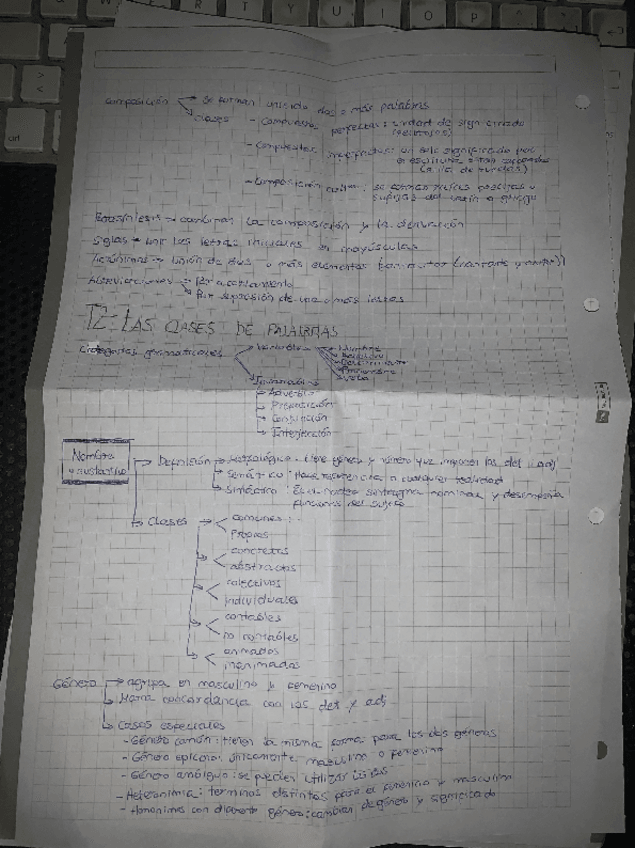 Composición → se forman uniendo dos o más palabras
clases - Compuestos perfectos: unidad de sign creado
- Compuestos imperfectos: un solo significado pero
la escritura están separados
- Composición culta: se forman raíces prefijas o
sufijas del latín o griego
Parasíntesis → combinan la composición y la derivación
Siglas → unir las letras iniciales en mayúsculas
Acrónimos → unión de dos o más elementos
Abreviaciones → Por acortamiento
Por supresión de una o más letras
T2: LAS CLASES DE PALABRAS
Categorías gramaticales Variables Nombre
Adjetivo
Determinante
Pronombre
Verbo
Invariables
Adverbio
Preposición
Conjunción
Interjección
Nombre
o sustantivo
Definición → Morfológico: tiene género y número que
Semántico: Hace referencia a cualquier realidad
Sintáctico: Es el núcleo sintagma nominal y desempeña
funciones del sujeto
Clases → comunes:
Propios
concretos
abstractos
colectivos
individuales
contables
no contables
animados
inanimados
Género → agrupa en masculino y femenino
→ Marca concordancia con los det y adj
→ Casos especiales
- Género común: tienen la misma forma para los dos géneros
- Género epiceno: únicamente masculino o femenino
- Género ambiguo: se pueden utilizar
- Heteronimia: terminos distintos para el femenino y masculino
- Homónimos con diferente género: cambian de género y significado